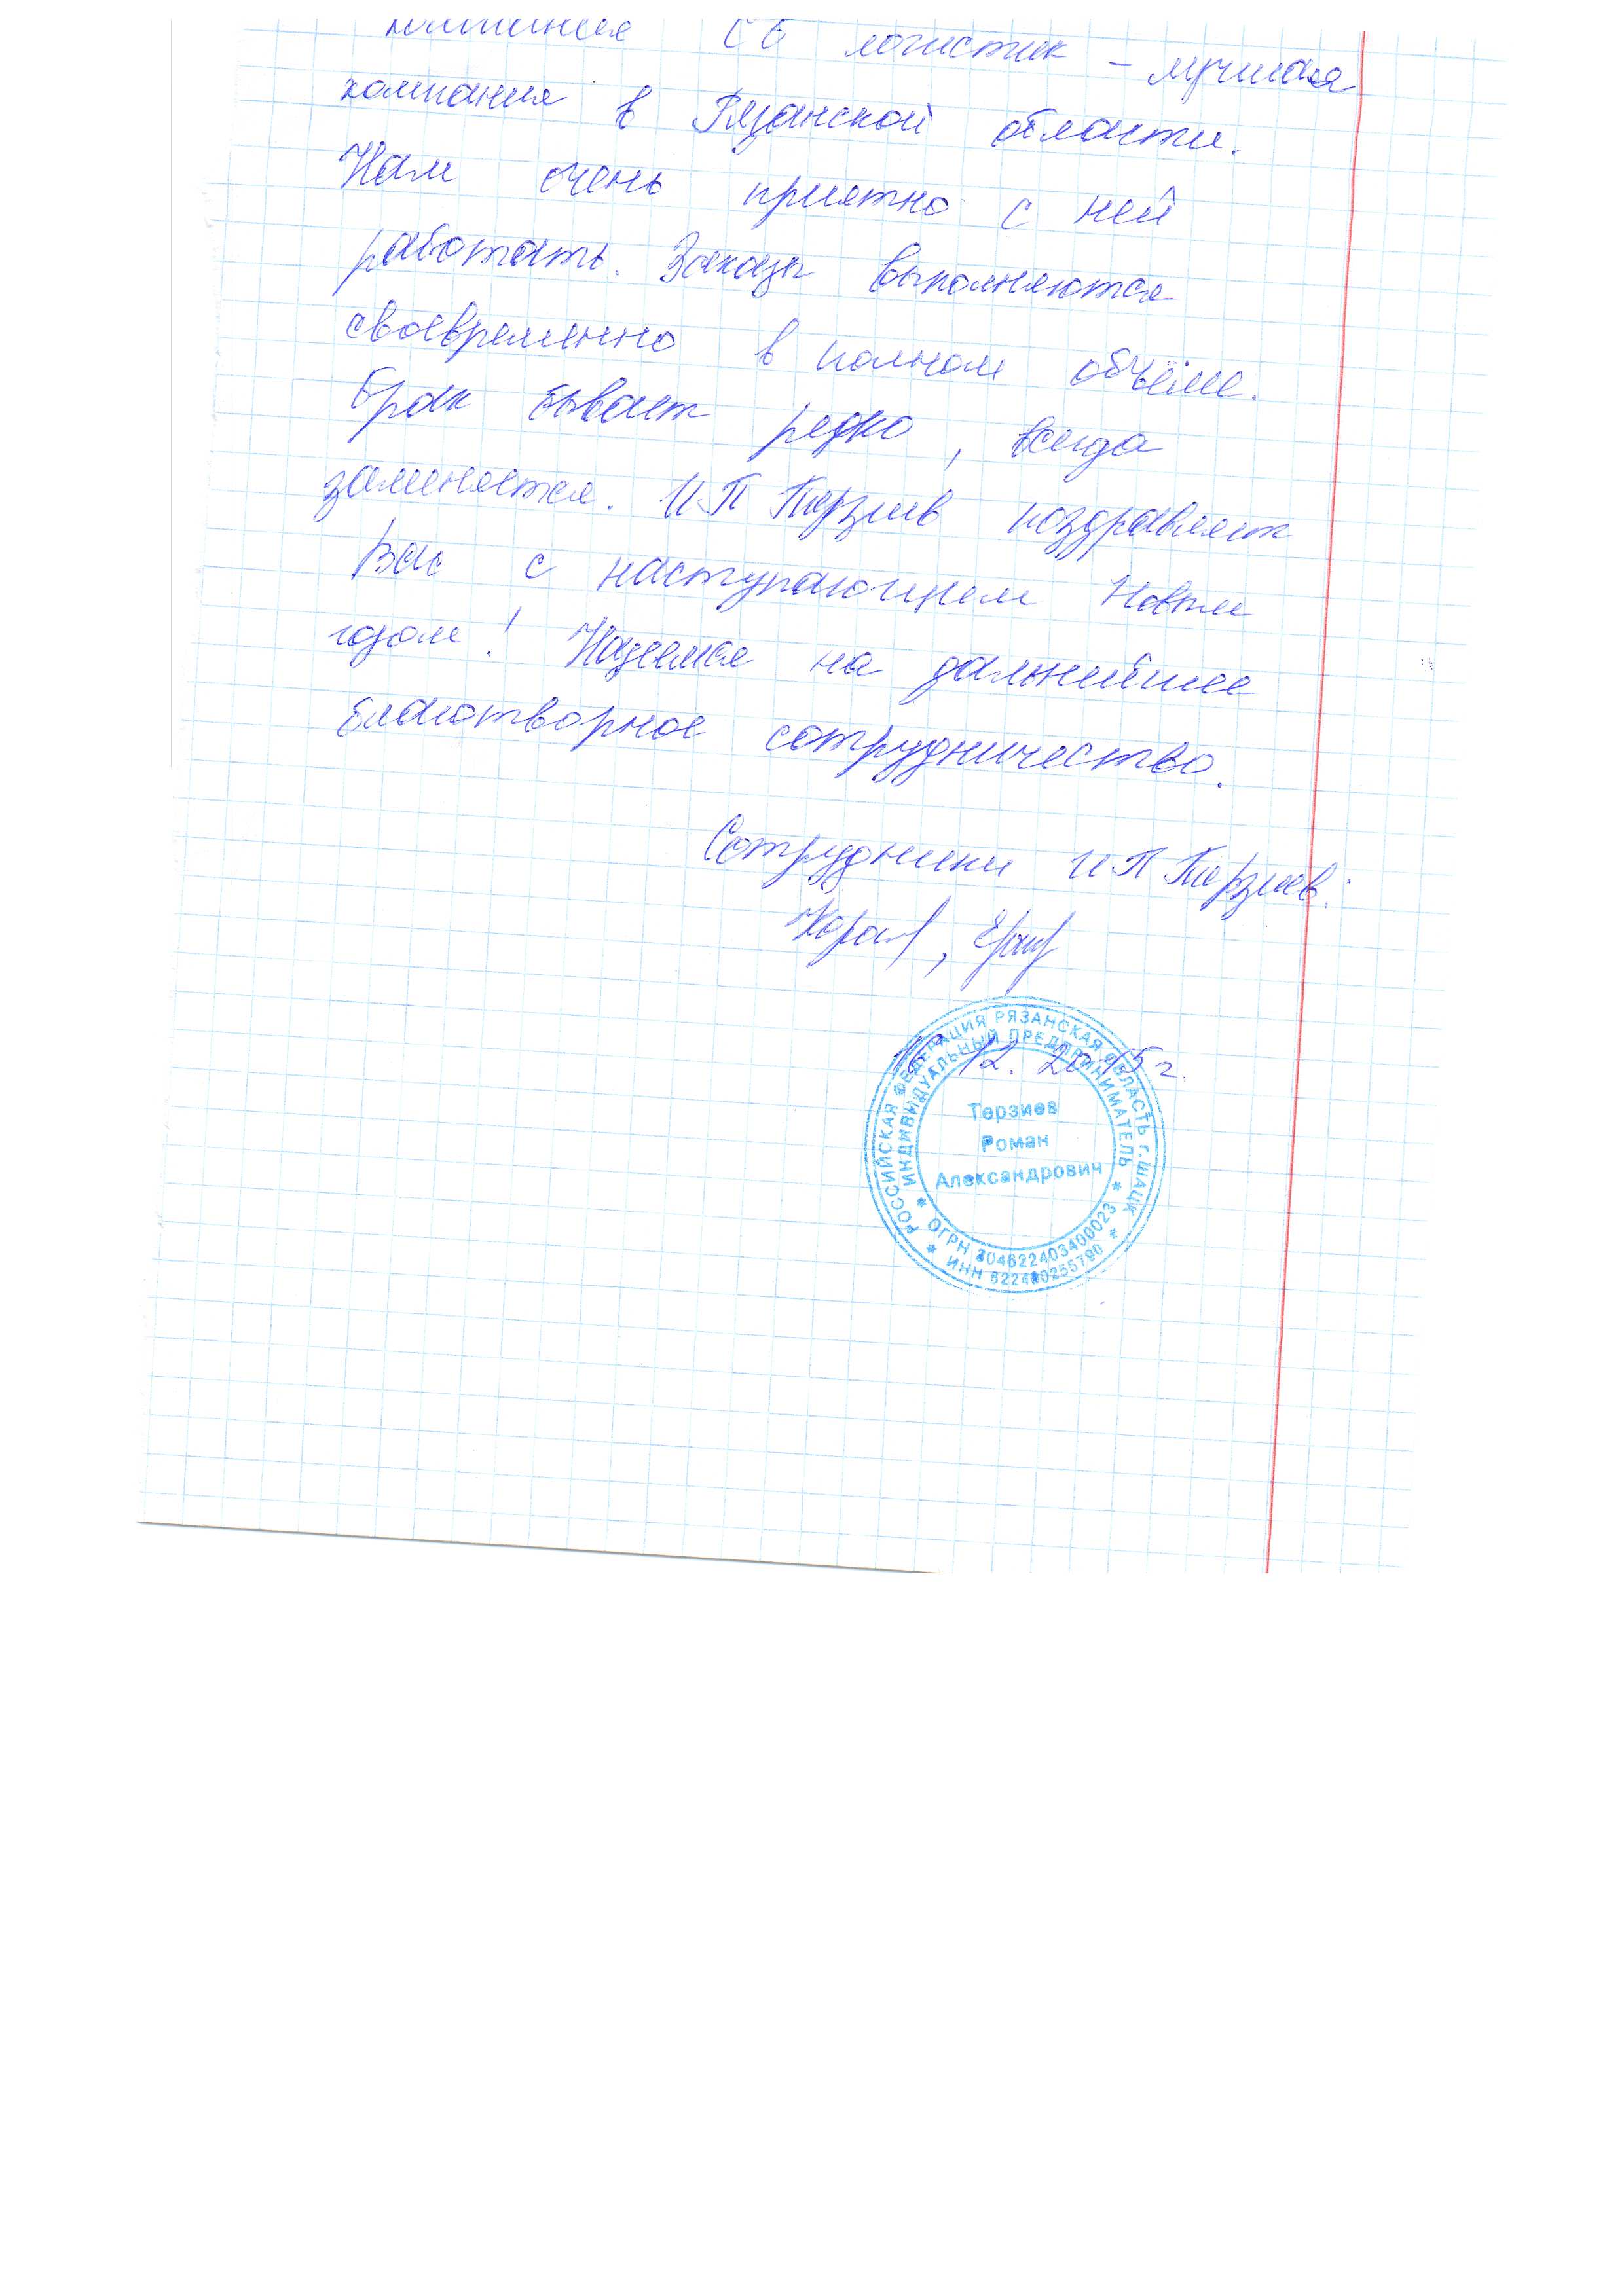 компания СБ логистик - лучшая
компания в Рязанской области.
Нам очень приятно с ней
работать. Заказы выполняются
своевременно в полном объёме.
Брак бывает редко, всегда
заменяется. ИП Терзиев поздравляет
Вас с наступающем Новым
годом! Надеемся на дальнейшее
благотворное сотрудничество.
Сотрудники ИП Терзиев:
12. 2015 г.
РОССИЙСКАЯ ФЕДЕРАЦИЯ РЯЗАНСКАЯ ОБЛАСТЬ г.ШАЦК
ИНДИВИДУАЛЬНЫЙ ПРЕДПРИНИМАТЕЛЬ
Терзиев
Роман
Александрович
ОГРН 304622403400023
ИНН